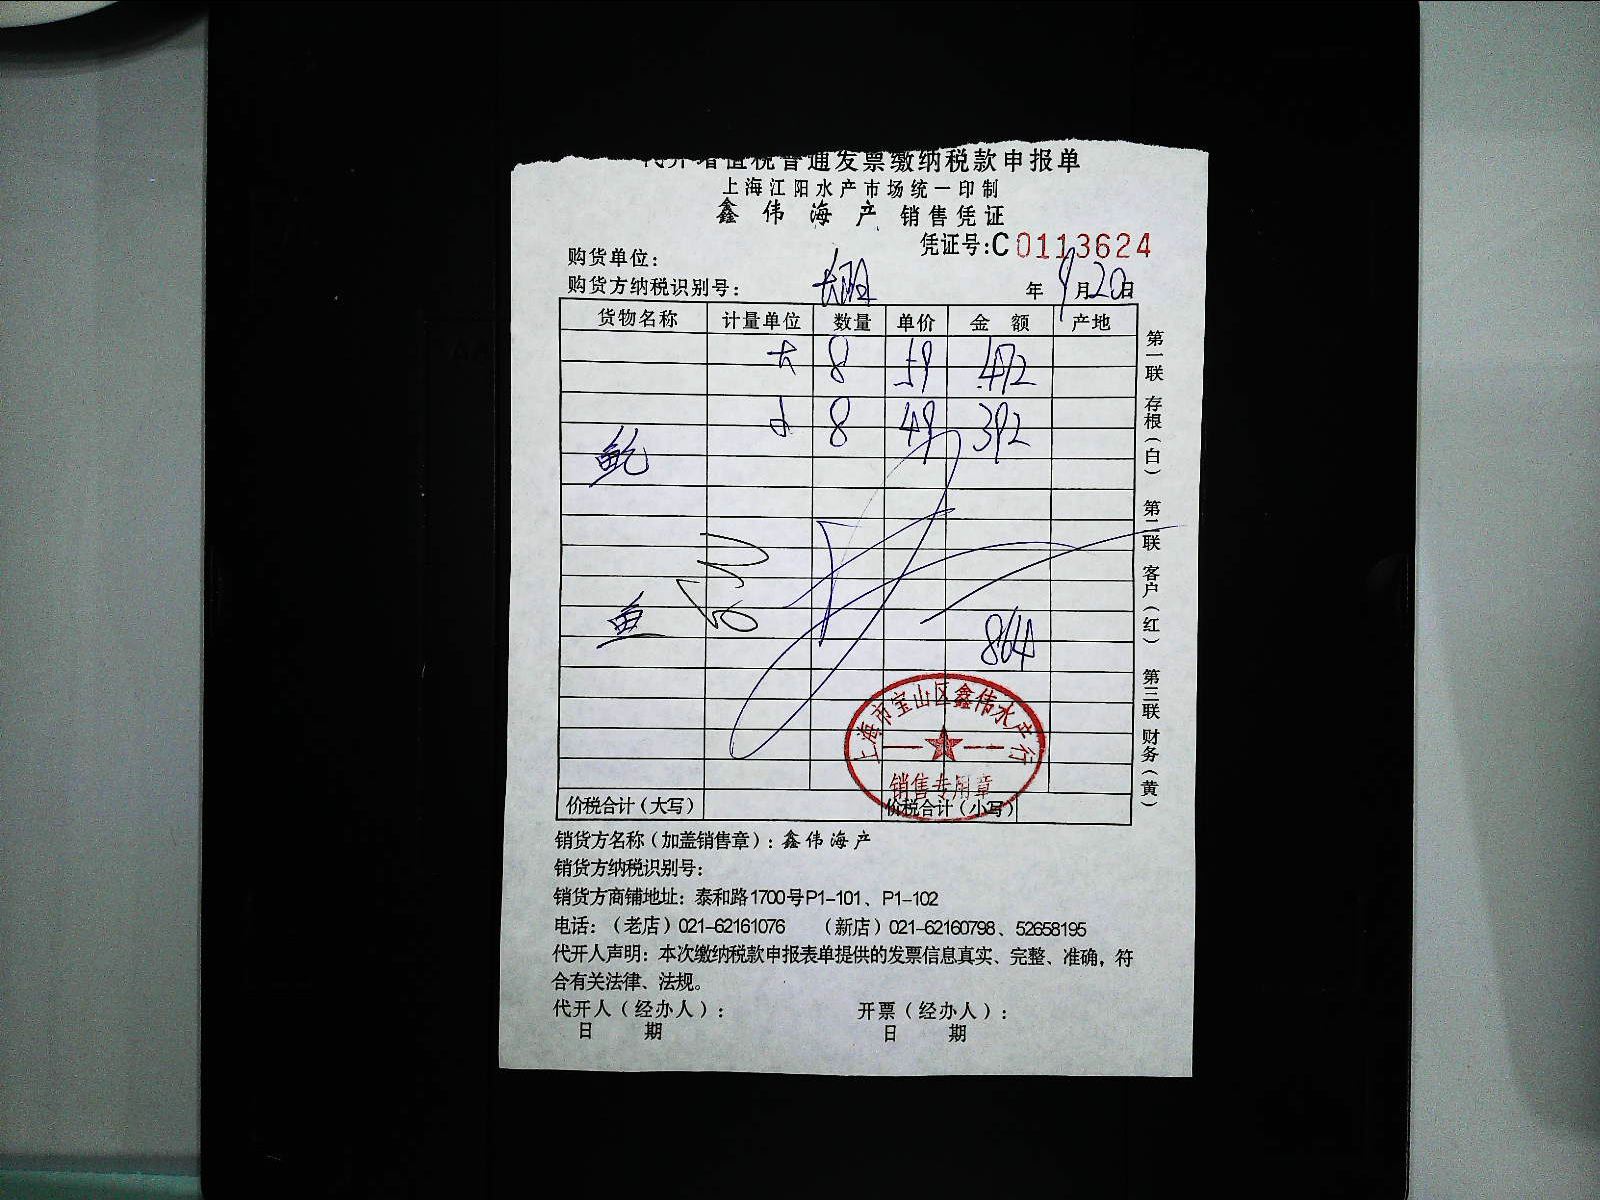 代开增值税普通发票缴纳税款申报单
上海江阳水产市场统一印制
鑫伟海产 销售凭证
凭证号:C0113624
购货单位：
购货方纳税识别号： 长阳 年 9月20日
货物名称 计量单位 数量 单价 金额 产地
大 8 59 472
小 8 49 392
鲍
鱼
864
上海市宝山区鑫伟水产行
销售专用章
价税合计（大写） 价税合计（小写）
第一联 存根（白） 第二联 客户（红） 第三联 财务（黄）
销货方名称（加盖销售章）：鑫伟海产
销货方纳税识别号：
销货方商铺地址：泰和路1700号P1-101、P1-102
电话：（老店）021-62161076 （新店）021-62160798、52658195
代开人声明：本次缴纳税款申报表单提供的发票信息真实、完整、准确，符
合有关法律、法规。
代开人（经办人）： 开票（经办人）：
日期 日期